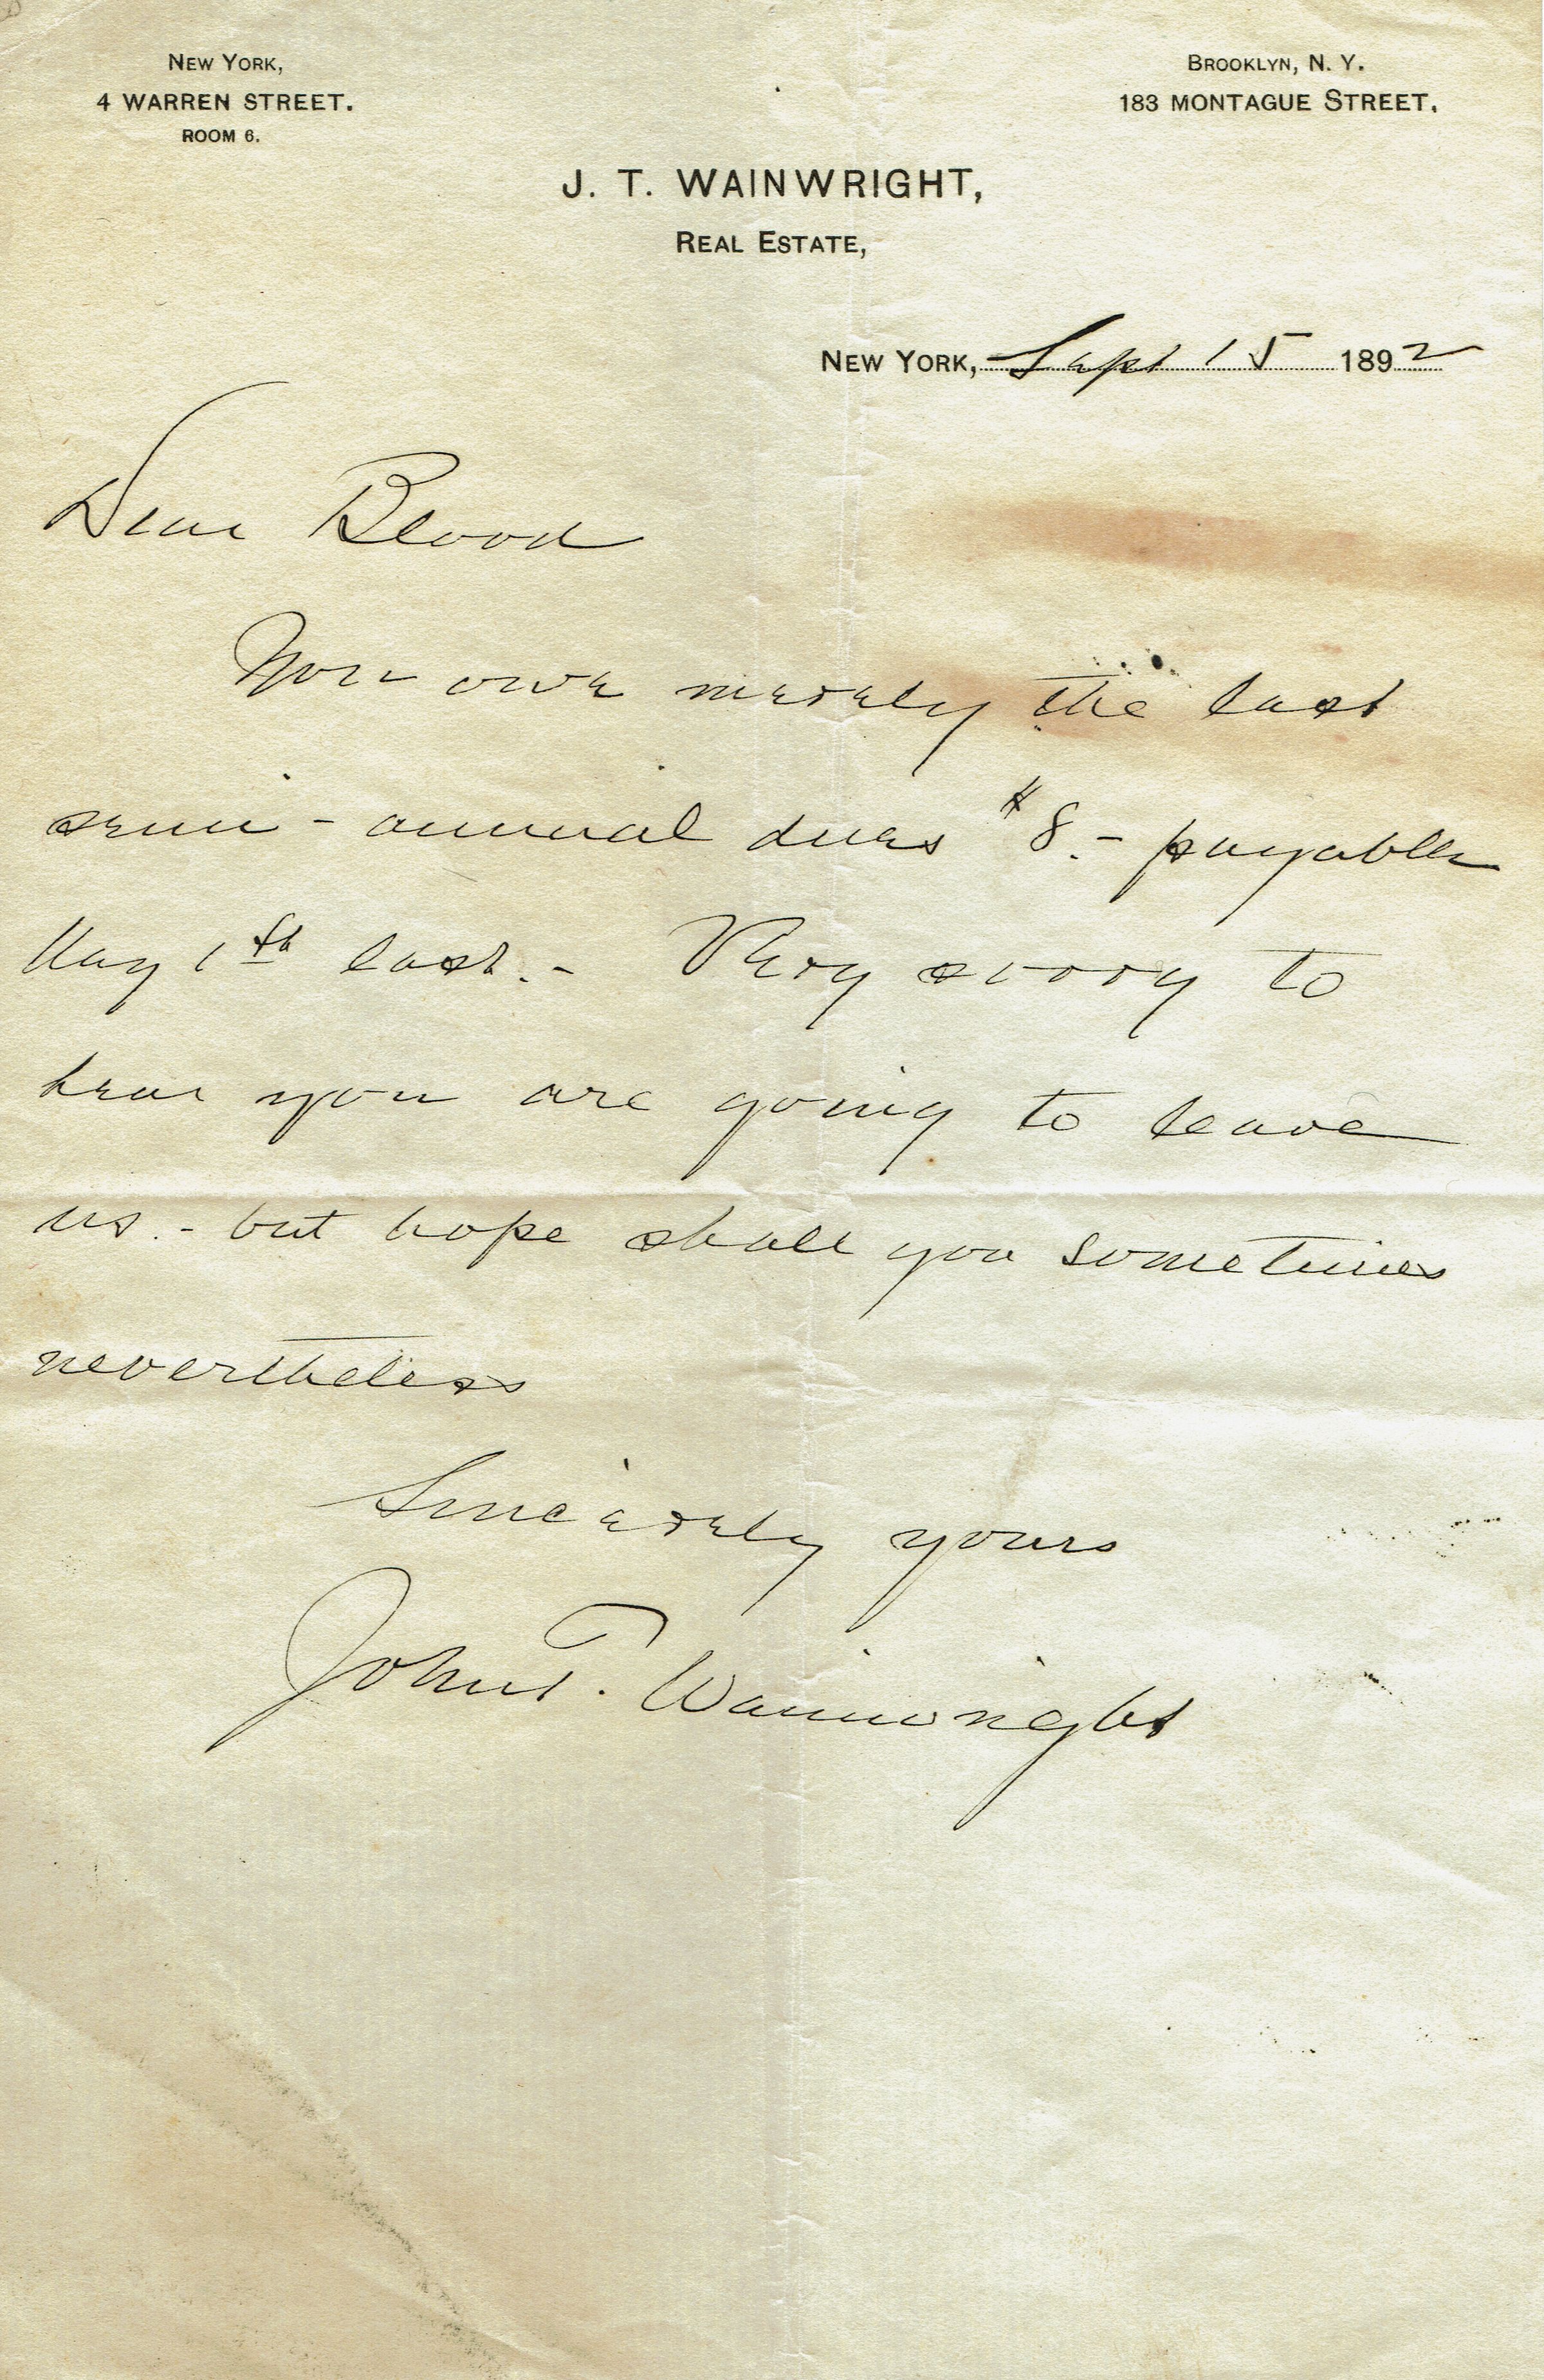 NEW YORK,
4 WARREN STREET.
ROOM 6.
BROOKLYN, N. Y.
183 MONTAGUE STREET.
J. T. WAINWRIGHT,
REAL ESTATE,
NEW YORK, Sept 15 1892
Dear Blood
You owe merely the last
semi-annual dues $8.- payable
May 1st last.- Very sorry to
hear you are going to leave
us.- but hope shall you sometimes
nevertheless
Sincerely yours
John T. Wainwright